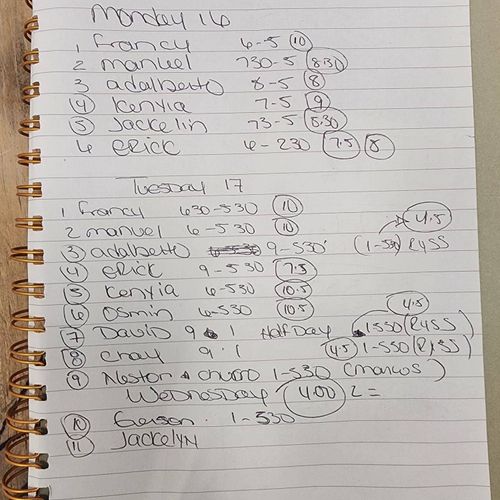 Monday 16
1 Francy 6-5 10
2 manuel 730-5 8:30
3 adalberto 8-5 8
4 Kenyia 7-5 9
5 Jackelin 73-5 8:30
6 Erick 6-230 7.5 8
Tuesday 17
1 Francy 630-530 10
2 manuel 6-530 10 4.5
3 adalberto 9-530 (1-530) Ryss
4 Erick 9-530 7.5
5 Kenyia 6-530 10.5
6 Osmin 6-530 10.5
4.5
7 David 9 1 Half Day 1530 (Ryss
8 Chay 9-1 4.5 1-530 (Ryss)
9 Neston churro 1-530 (marcos)
Wednesday 400 2 =
10 Gerson 1-530
11 Jackelyn